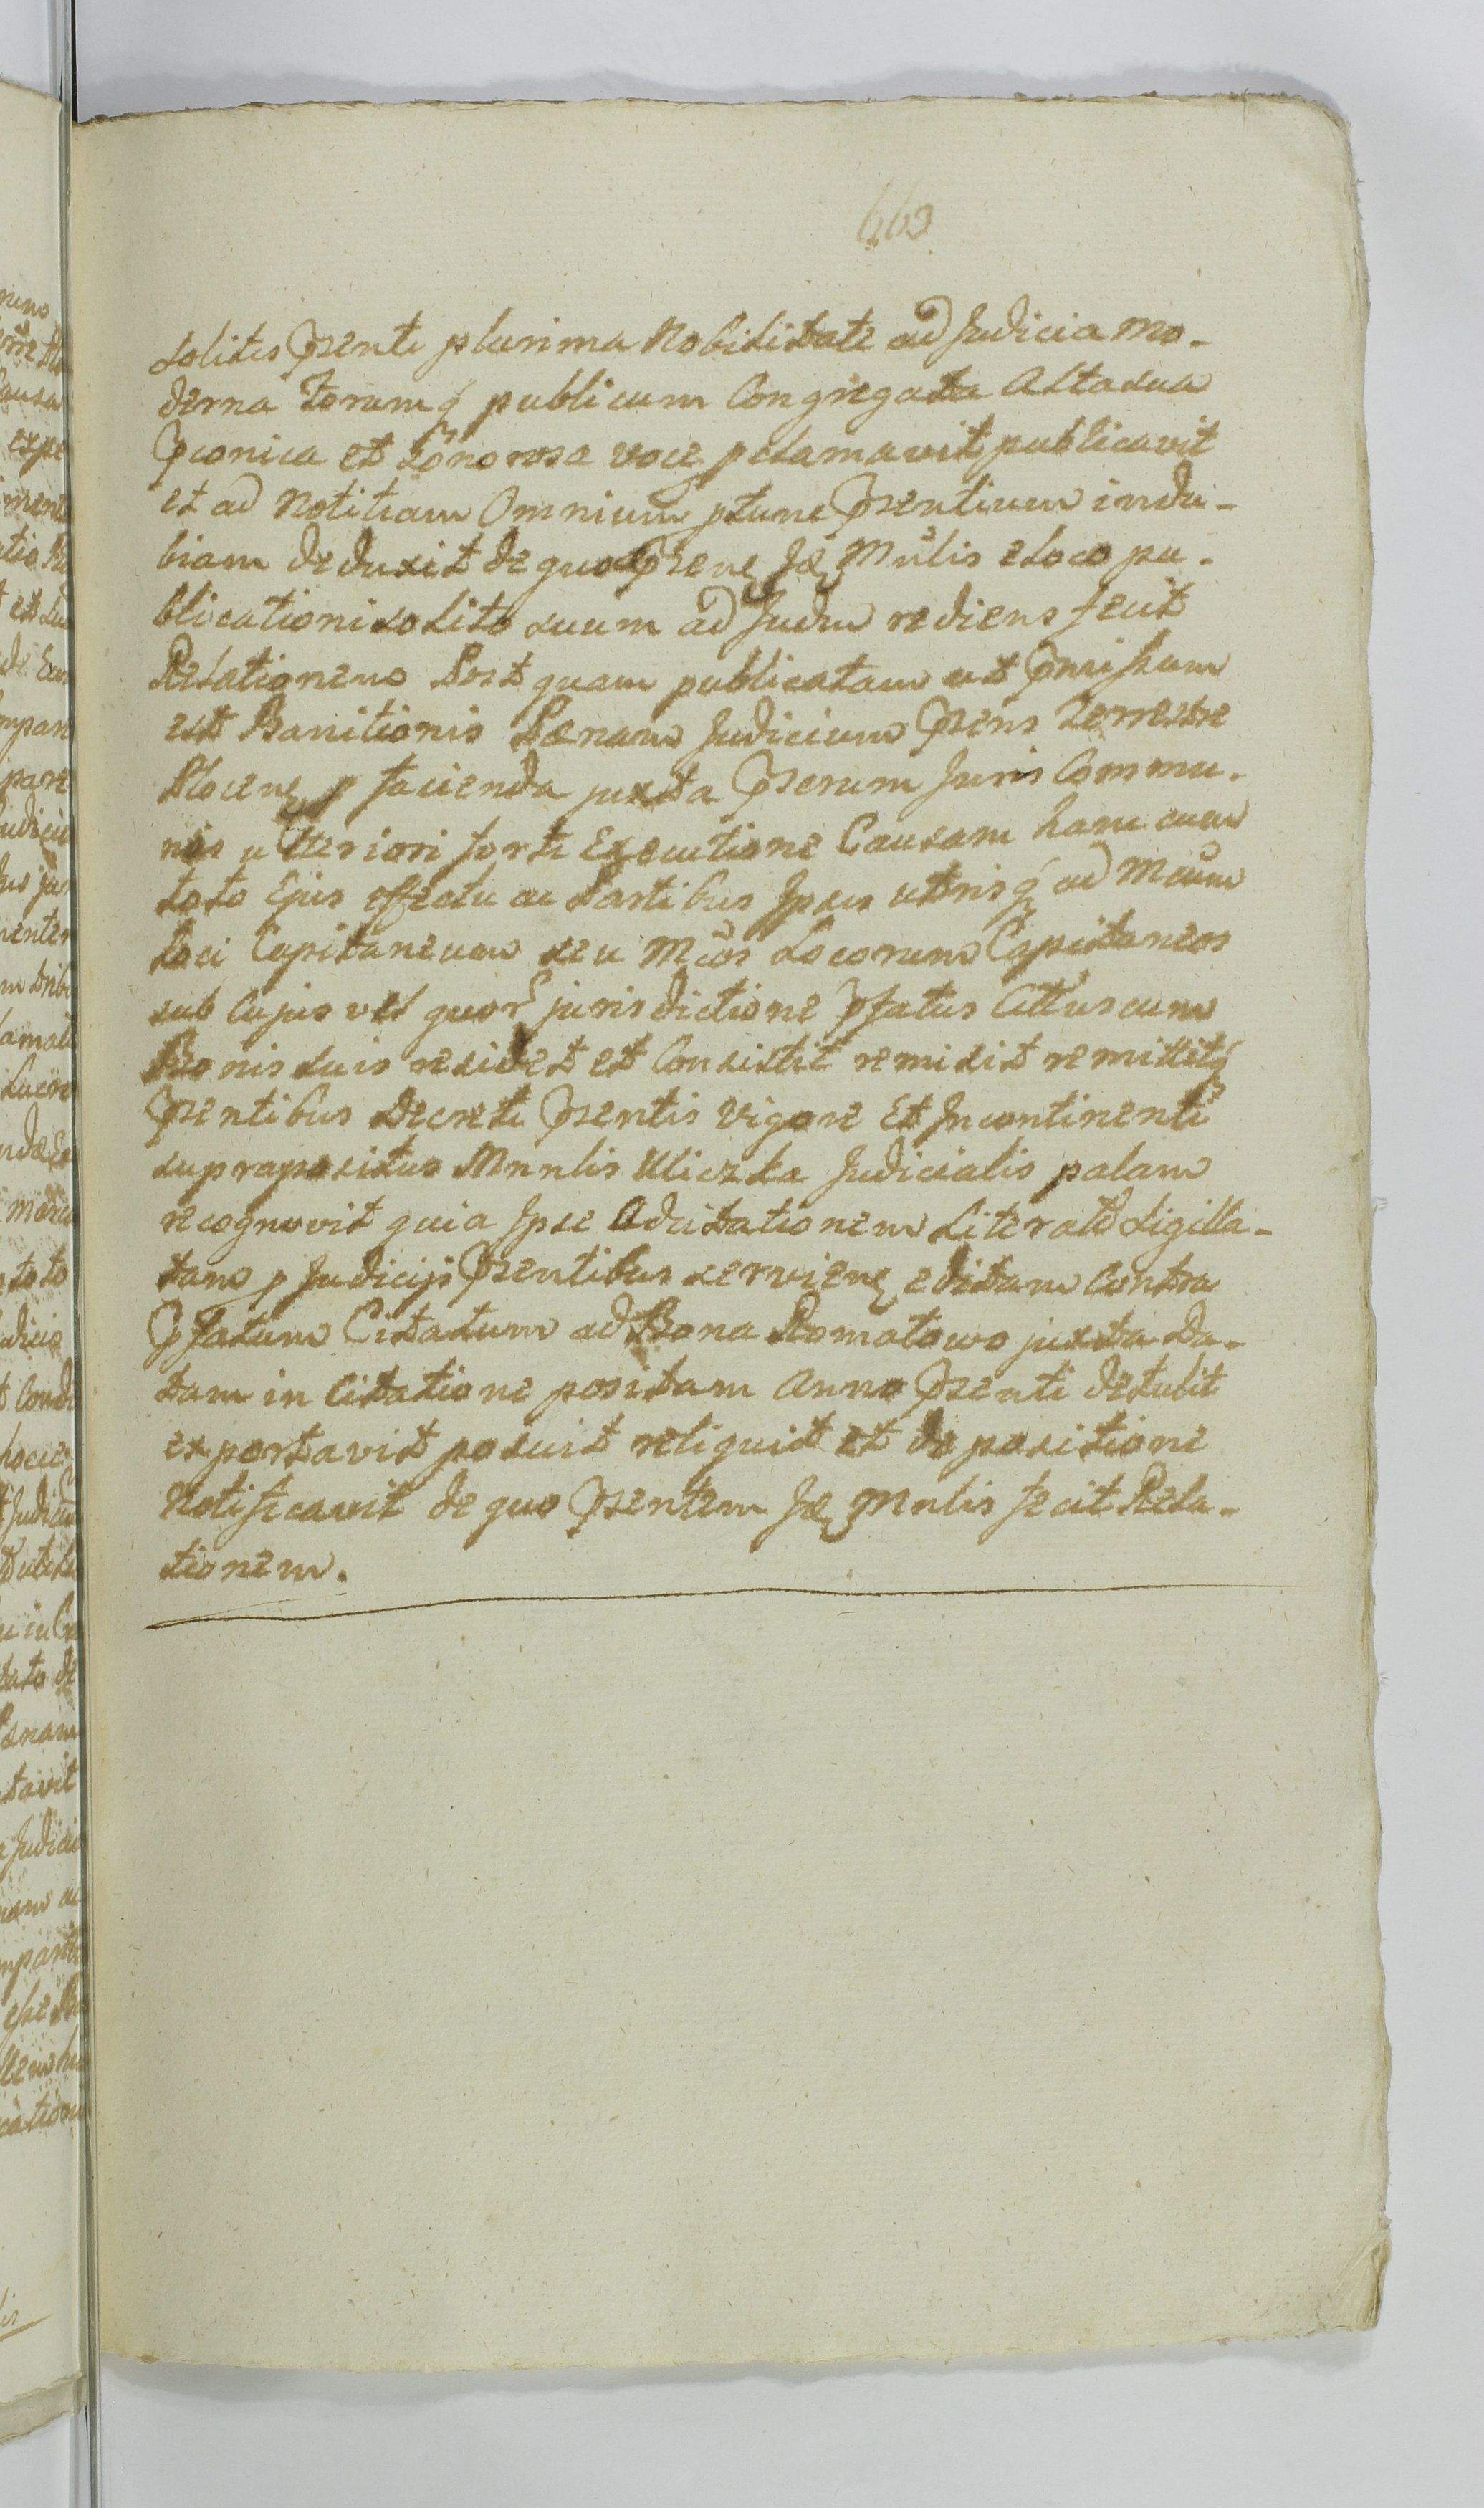 663
solitis Psenti plurima Nobilitate ad Judicia mo-
derna Forumq́ publicum Congregata Alta sua
Pconica et Sonorosa voce pclamavit publicavit
et ad Notitiam Omnium ptunc Psentium indu-
biam deduxit de quo Psene Jdē Mn̄lis eloco pu-
blicationi solito suum ad Judm rediens fecit
Relationem Post quam publicatam ut Pmissum
est Banitionis Pœnam Judicium Psens Terrestre
Plocene p facienda juxta Pserum Juris Commu-
nis ulteriori forti Executione Causam hanc cum
toto Ejus effectu ac Partibus Ipsis utrisq́ ad Mcūm
loci Capitaneum seu Mcōs Locorum Capitaneos
sub Cujus vel quor jurisdictione Pfatus Cittus cum
Bonis suis residet et Consistit remisit remittitq́
Psentibus Decreti Psentis Vigore Et Incontinenti
supra positus Mnnlis Uliczka Judicialis palam
recognovit quia Ipse Adcitationem Literato Sigilla-
tam p Judicijs Psentibus serviene editam Contra
Pfatum Citatum ad Bona Romatowo juxta Da-
tam in Citatione positam Anno Psenti detulit
exportavit posuit reliquit et de positione
Notificavit de quo Psentem Jdē Mnlis fecit Rela-
tionem.